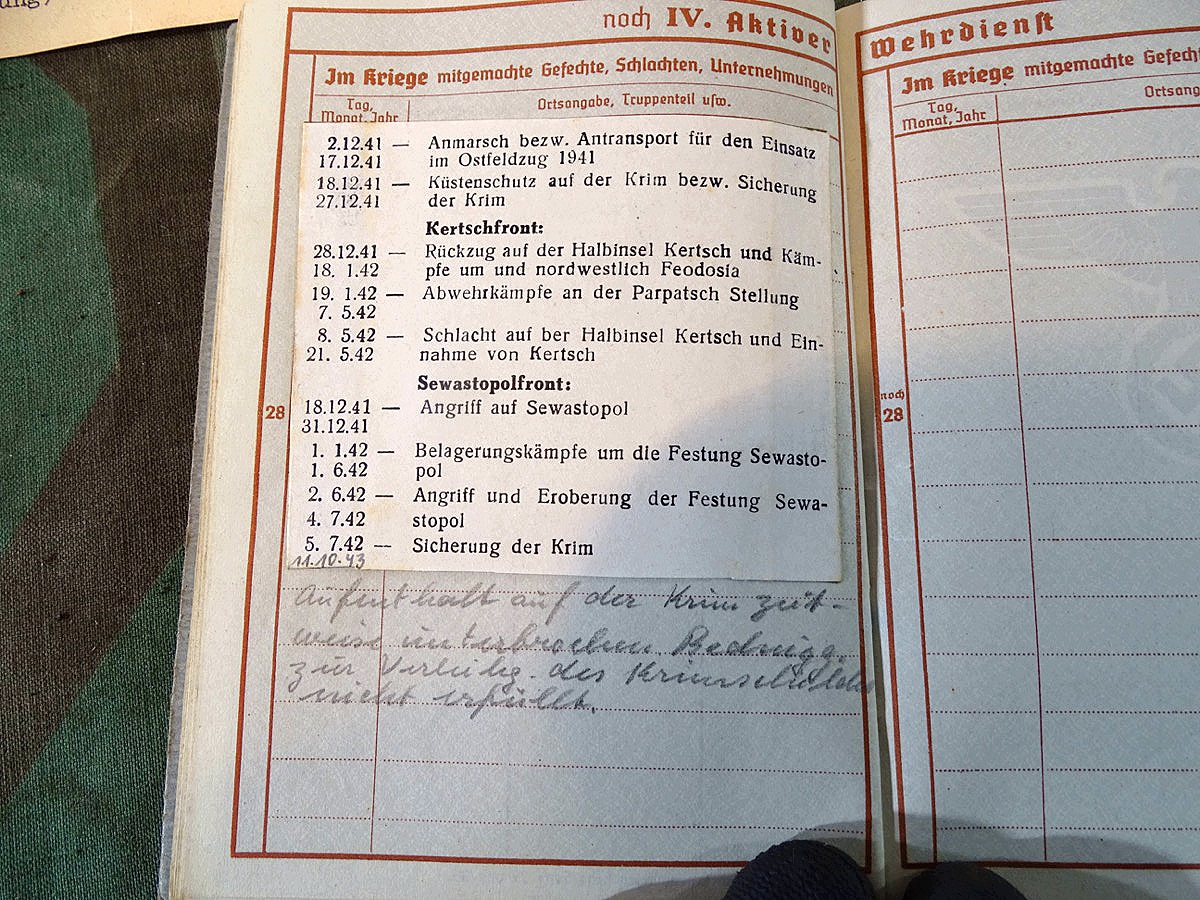 ung,
noch IV. Aktiver
Im Kriege mitgemachte Gefechte, Schlachten, Unternehmungen
Tag,
Monat, Jahr
Ortsangabe, Truppenteil usw.
2.12.41 — Anmarsch bezw. Antransport für den Einsatz
17.12.41 im Ostfeldzug 1941
18.12.41 — Küstenschutz auf der Krim bezw. Sicherung
27.12.41 der Krim
Kertschfront:
28.12.41 — Rückzug auf der Halbinsel Kertsch und Käm-
18. 1.42 pfe um und nordwestlich Feodosia
19. 1.42 — Abwehrkämpfe an der Parpatsch Stellung
7. 5.42
8. 5.42 — Schlacht auf ber Halbinsel Kertsch und Ein-
21. 5.42 nahme von Kertsch
Sewastopolfront:
18.12.41 — Angriff auf Sewastopol
31.12.41
1. 1.42 — Belagerungskämpfe um die Festung Sewasto-
1. 6.42 pol
2. 6.42 — Angriff und Eroberung der Festung Sewa-
4. 7.42 stopol
5. 7.42 — Sicherung der Krim
11.10.43
28
Aufenthalt auf der Krim zeit-
weise unterbrochen.
zur Verleihg. des
nicht erfüllt.
Wehrdienst
Im Kriege mitgemachte Gefech
Tag,
Monat, Jahr
Ortsang
noch
28